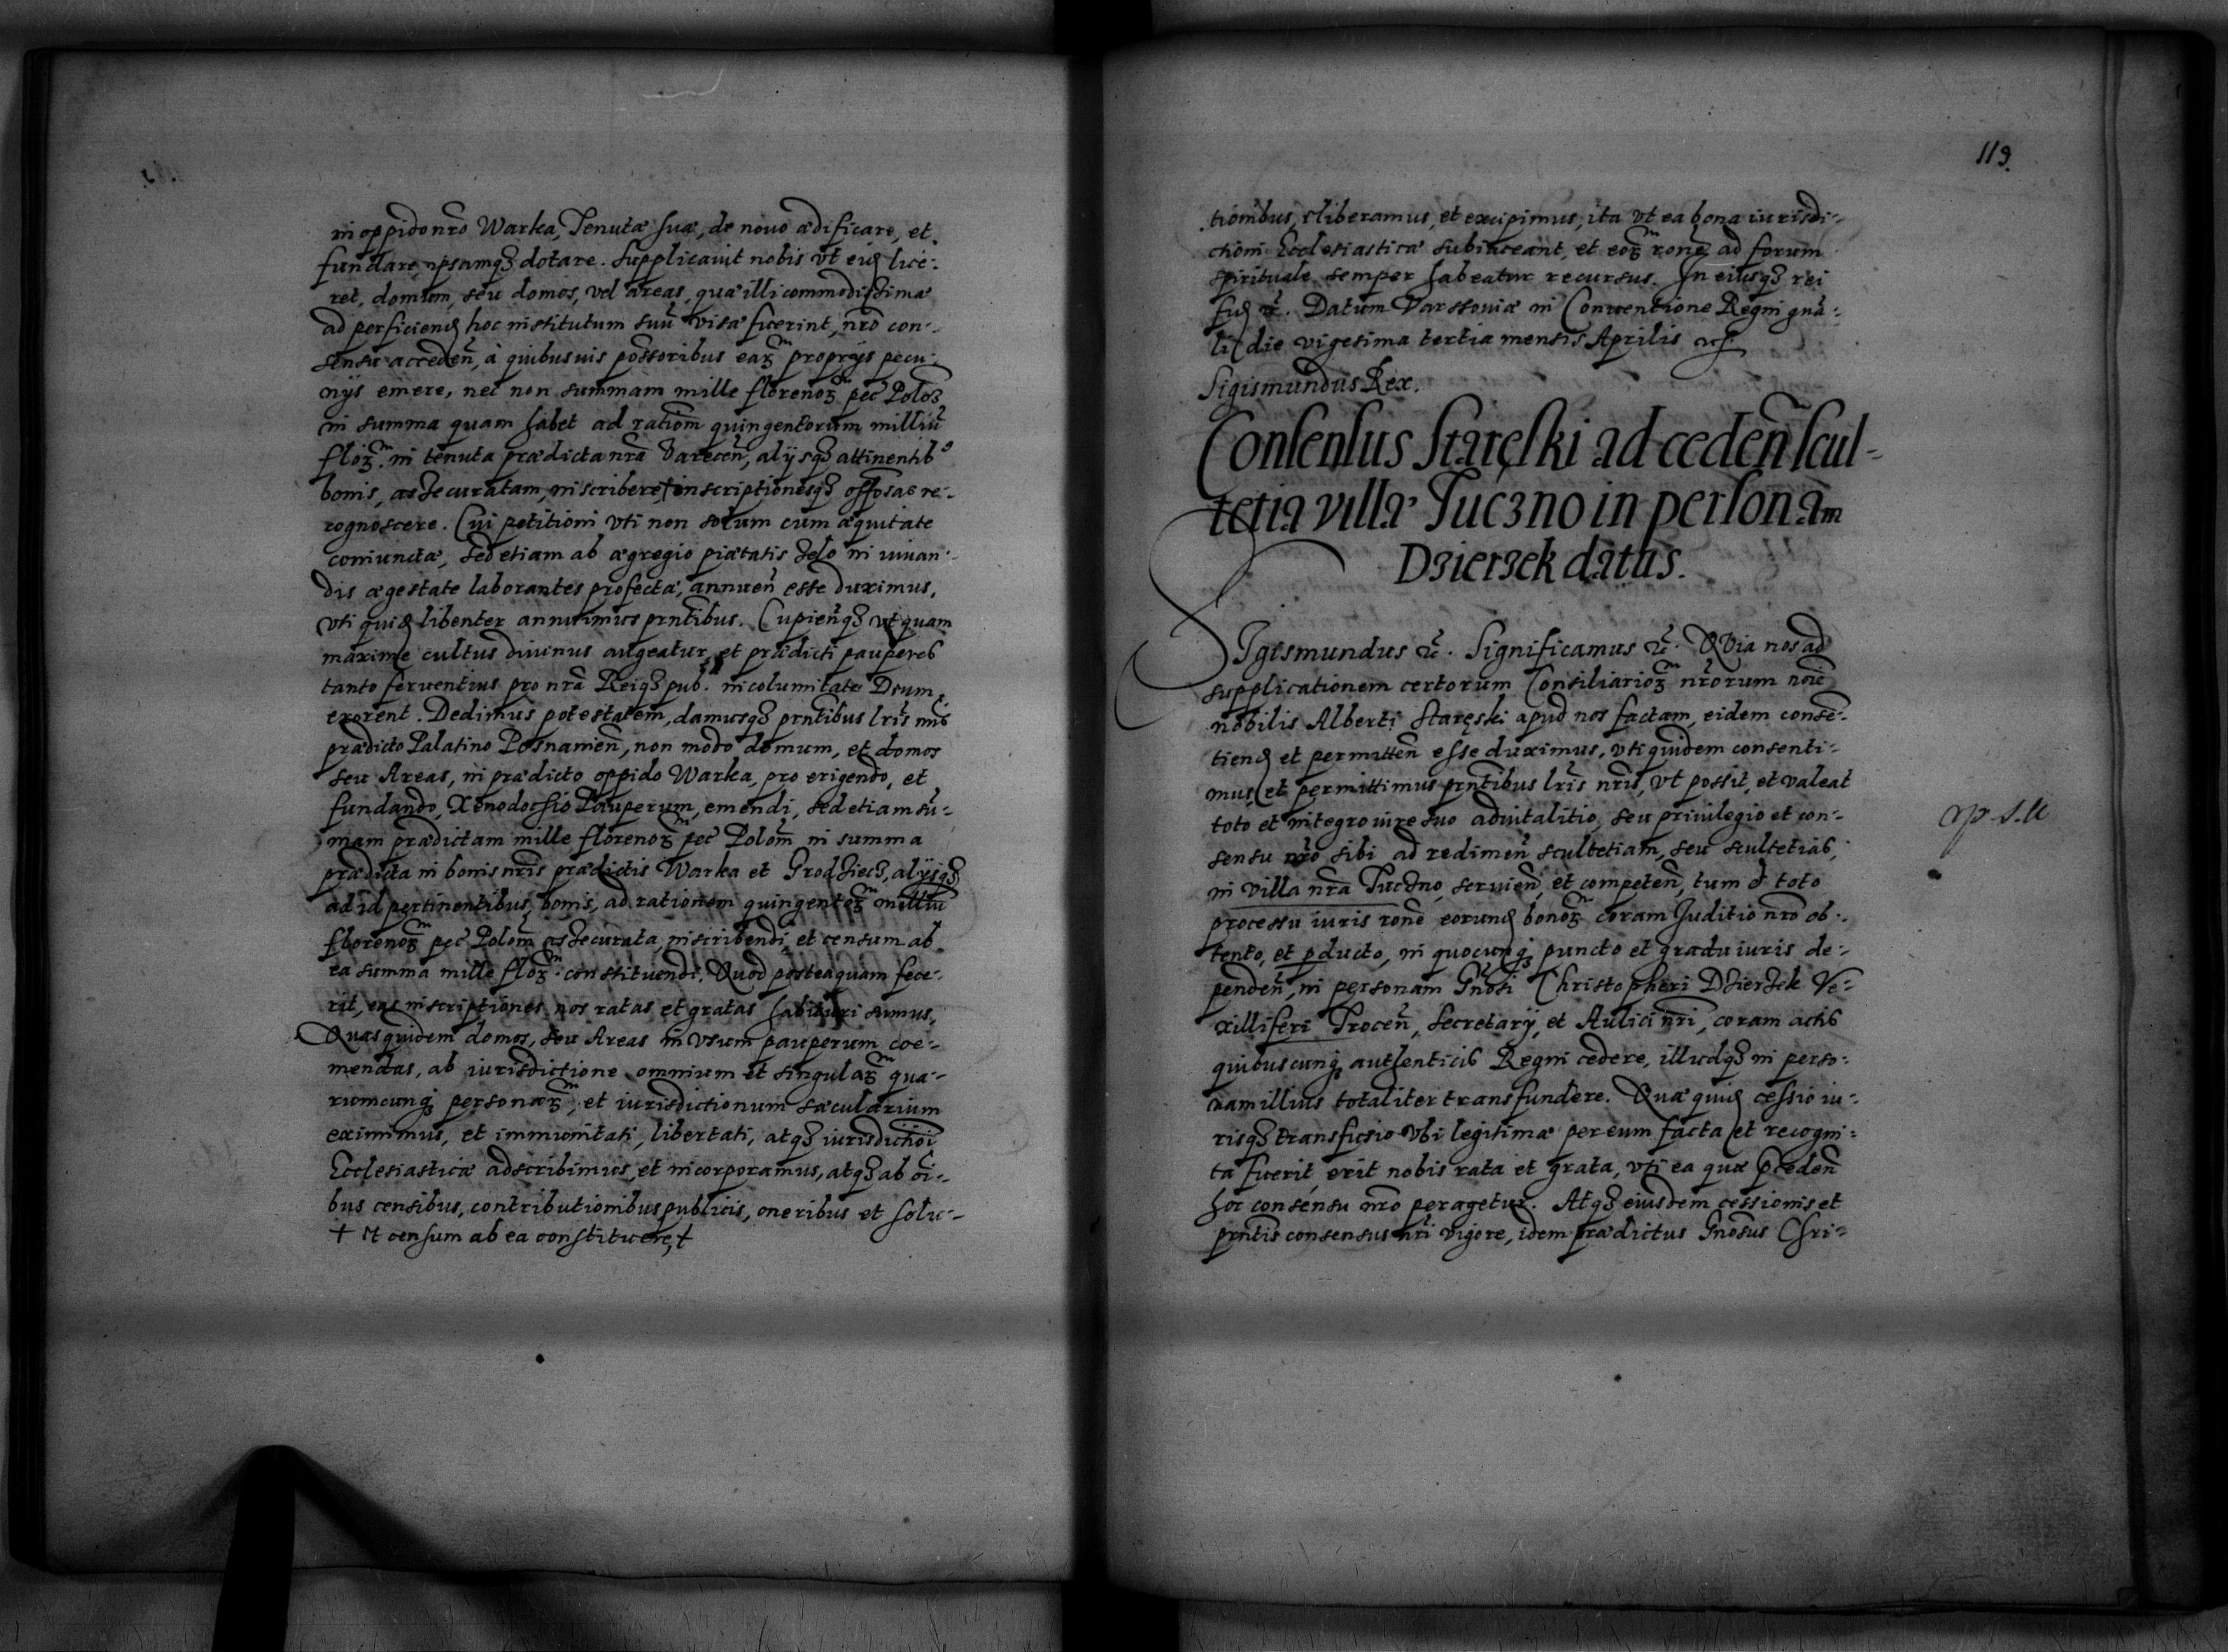 in oppido nrō Warka, Tenutæ suæ, de nouo ædificare, et
fundare, ipsamqꝫ dotare. Supplicauit nobis vt eiꝰ lice-
ret, domum, seu domos, vel areas, quæ illi commodissimæ
ad perficienꝭ hoc institutum suū visæ fuerint, nrō con-
sensu acceden̄, à quibusuis possoribus eaꝝ proprijs pecu-
nijs emere, nec non summam mille florenoꝝ pec̄ Polo:
in summa quam habet ad ratiom̄ quingentorum milliū
floꝝ. in tenuta prædicta nrā Varecen̄, alijsqꝫ attinentibꝰ
bonis, assecuratam, inscribere, + inscriptionesqꝫ offosas re-
cognoscere. Cui petitioni vti non solum cum æquitate
coniunctæ, sed etiam ab ægregio piætatis zelo in iuuan-
dis ægestate laborantes profectæ, annuen̄ esse duximus,
vti quiꝭ libenter annuimus prn̄tibus. Cupien̄qꝫ vt quam
maxime cultus diuinus augeatur, et prædicti pauperes
tanto feruentius pro nrā Reiqꝫ pub. incolumitate Deum
exorent. Dedimus potestatem, damusqꝫ prn̄tibus lrīs nrīs
prædicto Palatino Posnanien̄, non modo domum, et domos
seu Areas, in prædicto oppido Warka, pro erigendo, et
fundando, Xenodochio Pauperum, emendi, sed etiam sū-
mam prædictam mille florenoꝝ pec̄ Polom̄ in summa
prædicta in bonis nrīs prædictis Warka et Grodziecz, alijsqꝫ
ad id pertinentibus, bonis, ad rationem quingentoꝝ milliū
florenoꝝ pec̄ Polom̄ assecurata, inscribendi, et censum ab
ea summa mille floꝝ. constituendi. Quod posteaquam fece-
rit, eas inscriptiones nos ratas et gratas habituri sumus,
Quas quidem domos, seu Areas in vsum pauperum coe-
mendas, ab iurisdictione omnium et singulaꝝ qua-
rumcunqꝫ personaꝝ, et iurisdictionum sæcularium
eximimus, et immunitati, libertati, atqꝫ iurisdictioi
Ecclesiasticæ adscribimus, et incorporamus, atqꝫ ab oī-
bus censibus, contributionibus publicis, oneribus et solu-
+ et censum ab ea constituere, +
119.
tionibus, liberamus, et excipimus, ita vt ea bona iurisdi-
ctioni Ecclesiasticæ subiaceant, et eoꝝ ronē ad forum
spirituale semper habeatur recursus. In eiusqꝫ rei
fiꝭ etc̄. Datum Varssouiæ in Conuentione Regni gnā-
li die vigesima tertia mensis Aprilis
Sigismundus Rex.
Consensus Staręski ad ceden̄ scul-
tetia villæ Tuczno in personam
Dzierzek datus.
SIgismundus etc̄. Significamus etc̄. Quia nos ad
supplicationem certorum Consiliarioꝝ nrōrum noīe
nobilis Alberti Staręski apud nos factam, eidem consē-
tienꝭ et permitten̄ esse duximus, vti quidem consenti-
mus, et permittimus prn̄tibus lrīs nrīs, vt possit, et valeat
toto et integro iure suo aduitalitio, seu priuilegio et con-
sensu nrō sibi ad redimen̄ scultetiam, seu scultetias,
in villa nrā Tuczno, seruien̄ et competen̄, tum et toto
processu iuris ronē eorunꝭ bonoꝝ coram Juditio nrō ob-
tento, et ꝑducto, in quocunqꝫ puncto et gradu iuris de-
penden̄, in personam Gnōsi Christopheri Dzierzek Ve-
xilliferi Trocen̄, Secretarij, et Aulici nrī, coram actis
quibuscunqꝫ authenticis Regni cedere, illudqꝫ in perso-
nam illius totaliter transfundere. Quæ quiꝭ cessio iu-
risqꝫ transfusio vbi legitimæ per eum facta, et recogni-
ta fuerit, erit nobis rata et grata, vti ea quæ p̄ceden̄
hoc consensu nrō peragetur. Atqꝫ eiusdem cessionis et
prn̄tis consensus nrī vigore, idem prædictus Gnōsus Chri-